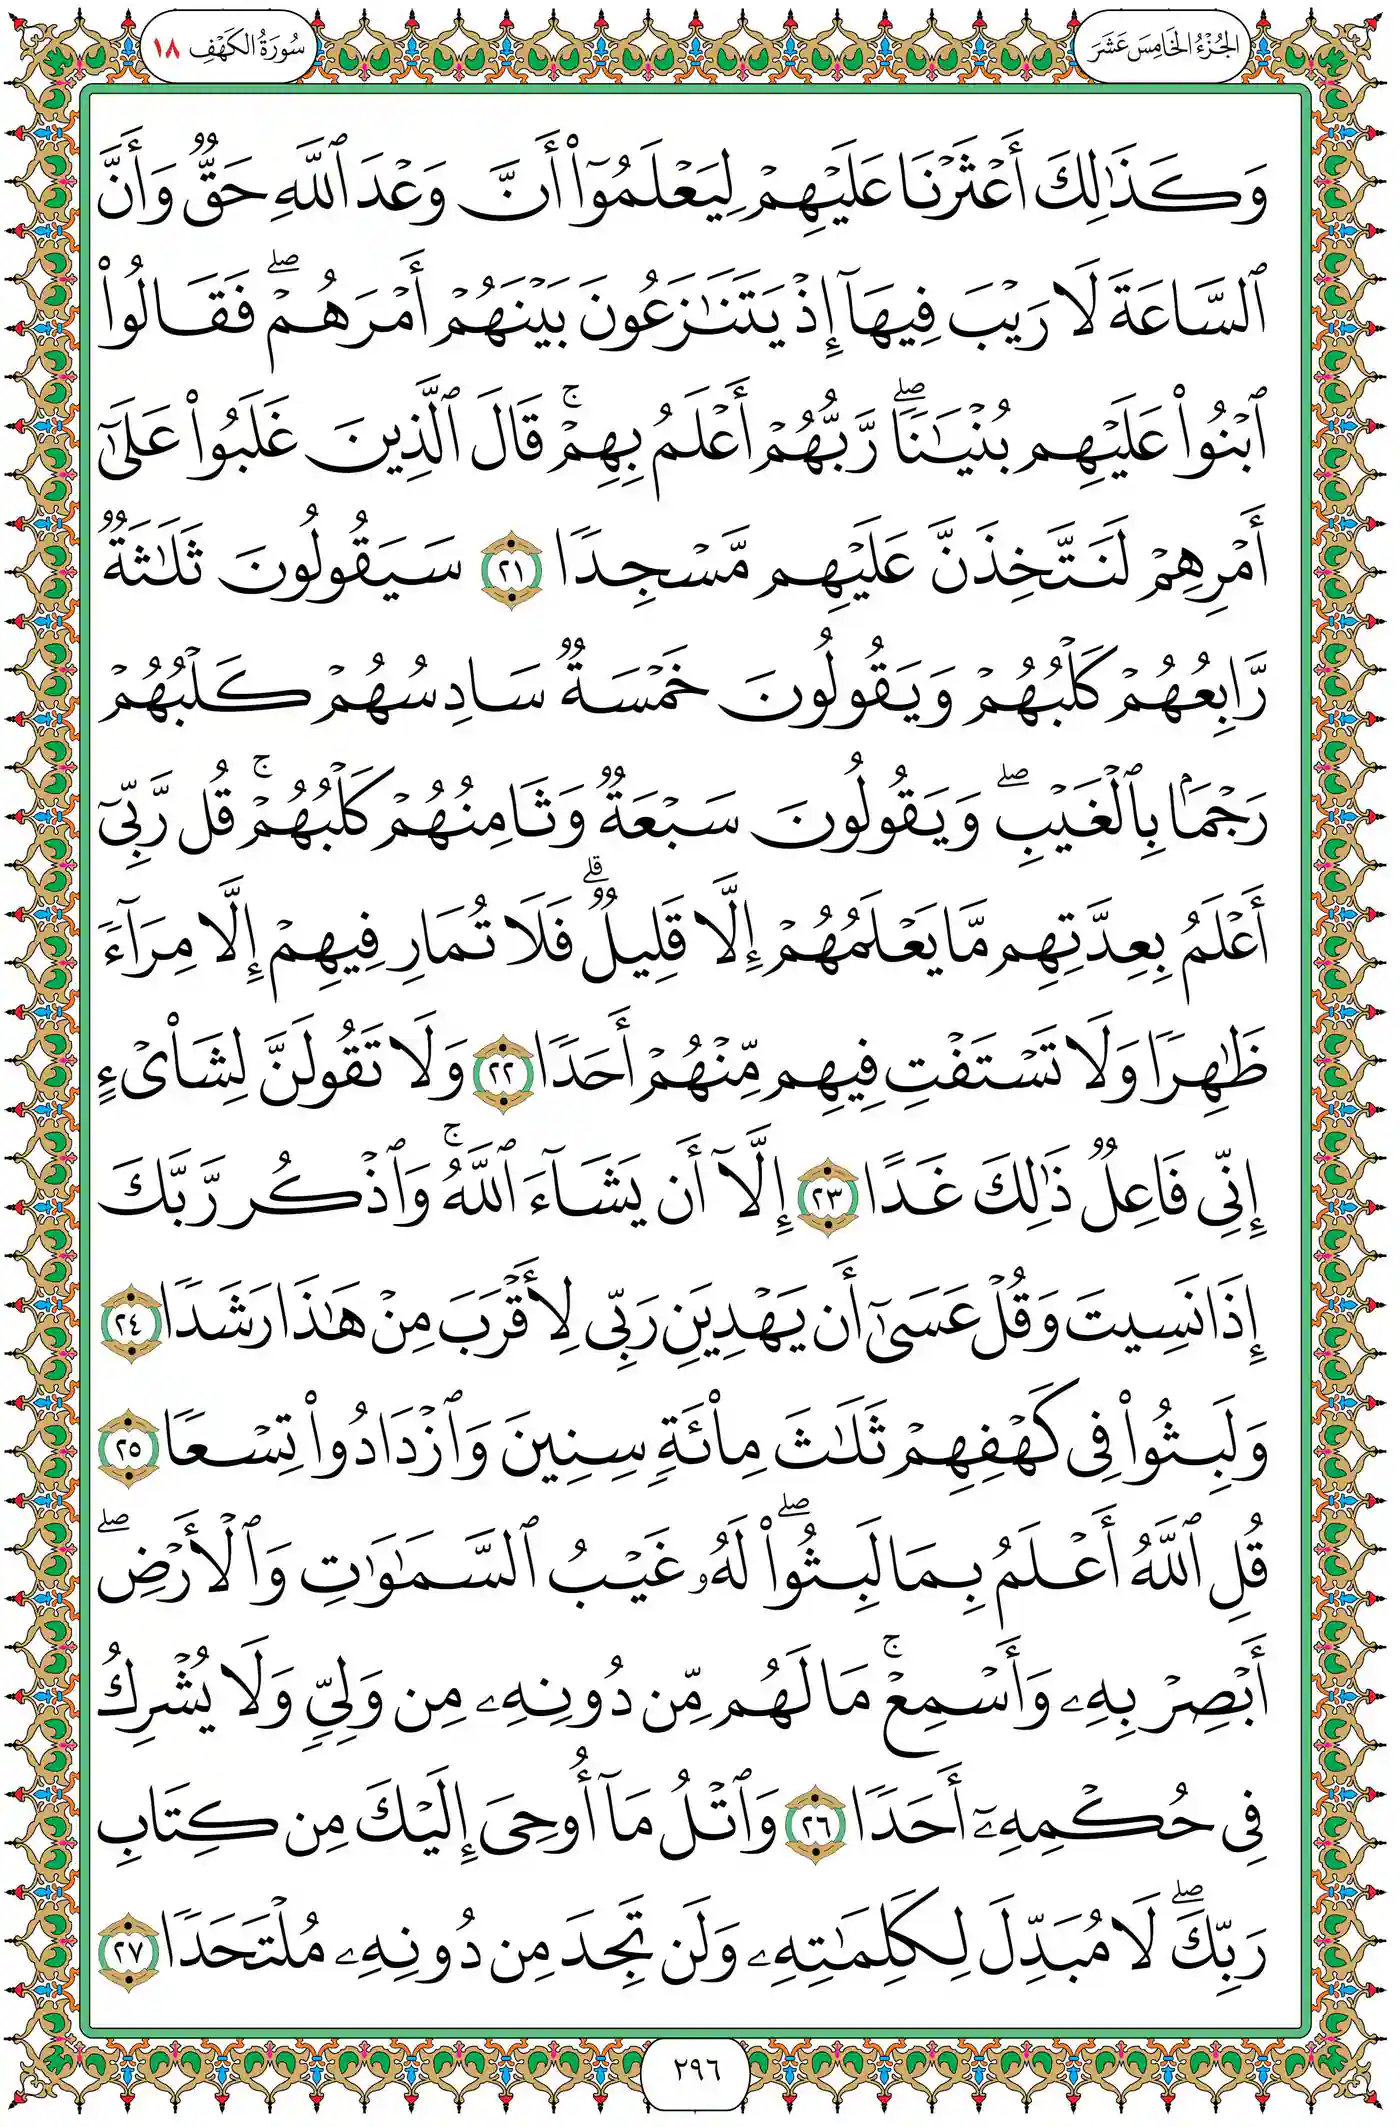 الجُزْءُ الخَامِسَ عَشَرَ
سُورَةُ الكَهْفِ ١٨
وَكَذَٰلِكَ أَعْثَرْنَا عَلَيْهِمْ لِيَعْلَمُوٓا۟ أَنَّ وَعْدَ ٱللَّهِ حَقٌّ وَأَنَّ
ٱلسَّاعَةَ لَا رَيْبَ فِيهَآ إِذْ يَتَنَٰزَعُونَ بَيْنَهُمْ أَمْرَهُمْ ۖ فَقَالُوا۟
ٱبْنُوا۟ عَلَيْهِم بُنْيَٰنًا ۖ رَّبُّهُمْ أَعْلَمُ بِهِمْ ۚ قَالَ ٱلَّذِينَ غَلَبُوا۟ عَلَىٰٓ
أَمْرِهِمْ لَنَتَّخِذَنَّ عَلَيْهِم مَّسْجِدًا ٢١ سَيَقُولُونَ ثَلَٰثَةٌ
رَّابِعُهُمْ كَلْبُهُمْ وَيَقُولُونَ خَمْسَةٌ سَادِسُهُمْ كَلْبُهُمْ
رَجْمًۢا بِٱلْغَيْبِ ۖ وَيَقُولُونَ سَبْعَةٌ وَثَامِنُهُمْ كَلْبُهُمْ ۚ قُل رَّبِّىٓ
أَعْلَمُ بِعِدَّتِهِم مَّا يَعْلَمُهُمْ إِلَّا قَلِيلٌ ۗ فَلَا تُمَارِ فِيهِمْ إِلَّا مِرَآءً
ظَٰهِرًا وَلَا تَسْتَفْتِ فِيهِم مِّنْهُمْ أَحَدًا ٢٢ وَلَا تَقُولَنَّ لِشَا۟ىْءٍ
إِنِّى فَاعِلٌ ذَٰلِكَ غَدًا ٢٣ إِلَّآ أَن يَشَآءَ ٱللَّهُ ۚ وَٱذْكُر رَّبَّكَ
إِذَا نَسِيتَ وَقُلْ عَسَىٰٓ أَن يَهْدِيَنِ رَبِّى لِأَقْرَبَ مِنْ هَٰذَا رَشَدًا ٢٤
وَلَبِثُوا۟ فِى كَهْفِهِمْ ثَلَٰثَ مِا۟ئَةٍ سِنِينَ وَٱزْدَادُوا۟ تِسْعًا ٢٥
قُلِ ٱللَّهُ أَعْلَمُ بِمَا لَبِثُوا۟ ۖ لَهُۥ غَيْبُ ٱلسَّمَٰوَٰتِ وَٱلْأَرْضِ ۖ
أَبْصِرْ بِهِۦ وَأَسْمِعْ ۚ مَا لَهُم مِّن دُونِهِۦ مِن وَلِىٍّ وَلَا يُشْرِكُ
فِى حُكْمِهِۦٓ أَحَدًا ٢٦ وَٱتْلُ مَآ أُوحِىَ إِلَيْكَ مِن كِتَابِ
رَبِّكَ ۖ لَا مُبَدِّلَ لِكَلِمَٰتِهِۦ وَلَن تَجِدَ مِن دُونِهِۦ مُلْتَحَدًا ٢٧
٢٩٦